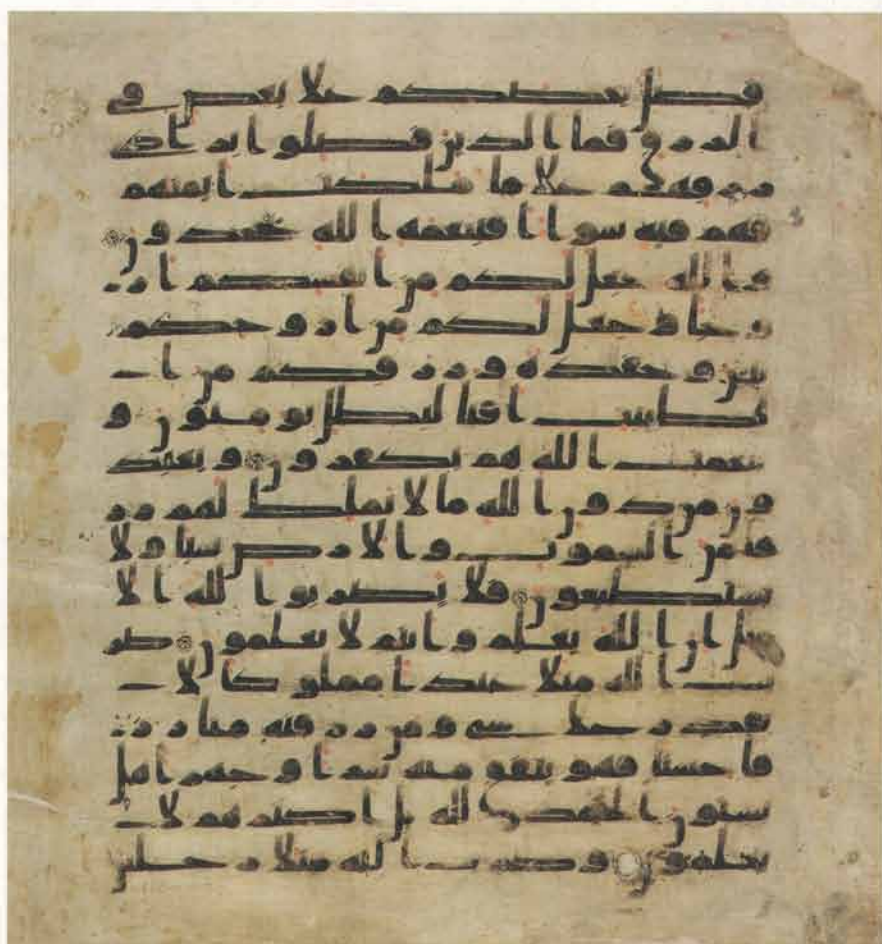 فضل بعضكم علا بعض في
الرزق فما الذين فضلوا برادي
رزقهم علا ما ملكت ايمنهم
فهم فيه سوا افبنعمه الله يجحدون
والله جعل لكم من انفسكم از
وجا وجعل لكم من ازوجكم
بنين وحفده ورزقكم من ا
لطيبت افبالبطل يومنون و
بنعمت الله هم يكفرون ويعبد
ون من دون الله ما لا يملك لهم رز
قا من السموت والارض شيا ولا
يستطيعون فلا تضربوا لله الا
مثل ان الله يعلم وانتم لا تعلمون ضر
ب الله مثلا عبدا مملوكا لا
يقدر علي شي ومن رزقنه منا رز
قا حسنا فهو ينفق منه سرا وجهرا هل
يستون الحمد لله بل اكثرهم لا
يعلمون وضرب الله مثلا رجلين